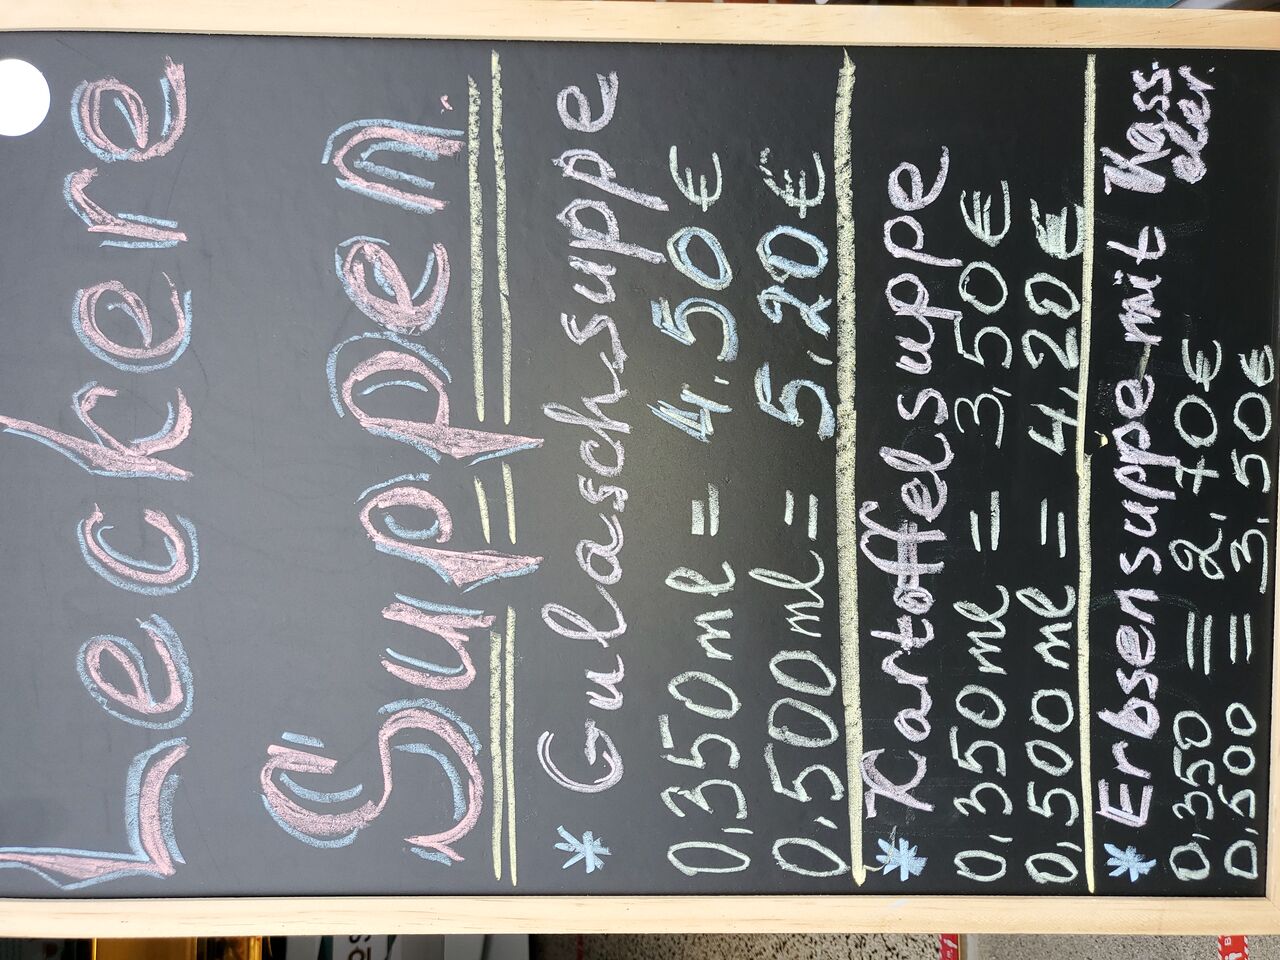 Leckere
Suppen
* Gulaschsuppe
0,350 ml = 4.50€
0,500 ml = 5,20€
* Kartoffelsuppe
0,350 ml = 3,50€
0,500 ml = 4,20€
* Erbsensuppe mit Kass-
der.
0,350 = 2,70€
0,500 = 3,50€